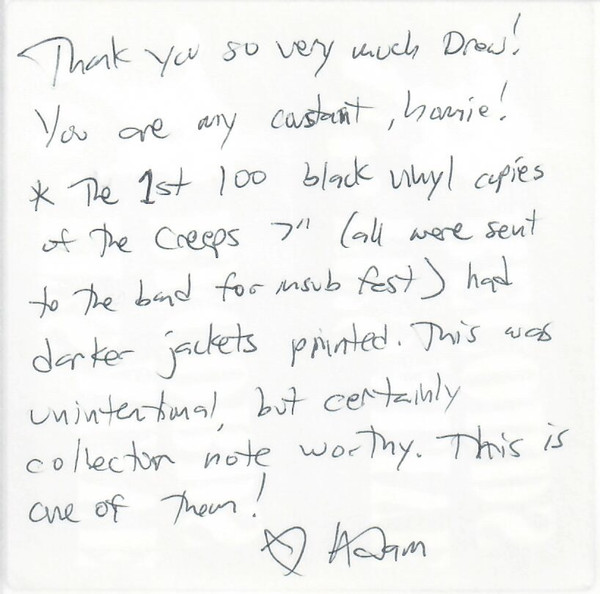 Thank you so very much Drew!
You are my constant, homie!
* The 1st 100 black vinyl copies
of the Creeps 7" (all were sent
to the band for insub fest) had
darker jackets printed. This was
unintentional, but certainly
collector note worthy. This is
one of them!
♡ Adam